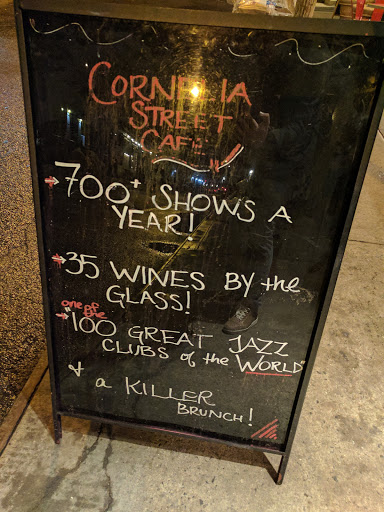 CORNELIA
STREET
CAFÉ
700+ SHOWS A
YEAR!
35 WINES BY the
GLASS!
one of
the
"100 GREAT JAZZ
CLUBS of the WORLD"
& a KILLER
BRUNCH!